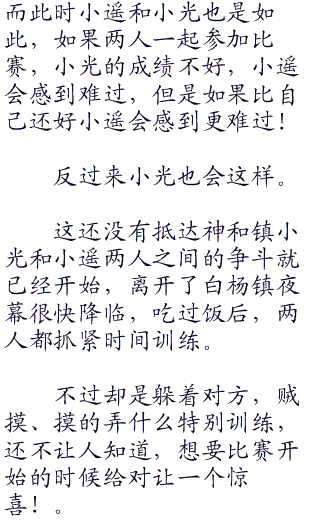 而此时小遥和小光也是如
此，如果两人一起参加比
赛，小光的成绩不好，小遥
会感到难过，但是如果比自
己还好小遥会感到更难过！
反过来小光也会这样。
这还没有抵达神和镇小
光和小遥两人之间的争斗就
已经开始，离开了白杨镇夜
幕很快降临，吃过饭后，两
人都抓紧时间训练。
不过却是躲着对方，贼
摸、摸的弄什么特别训练，
还不让人知道，想要比赛开
始的时候给对让一个惊
喜！。